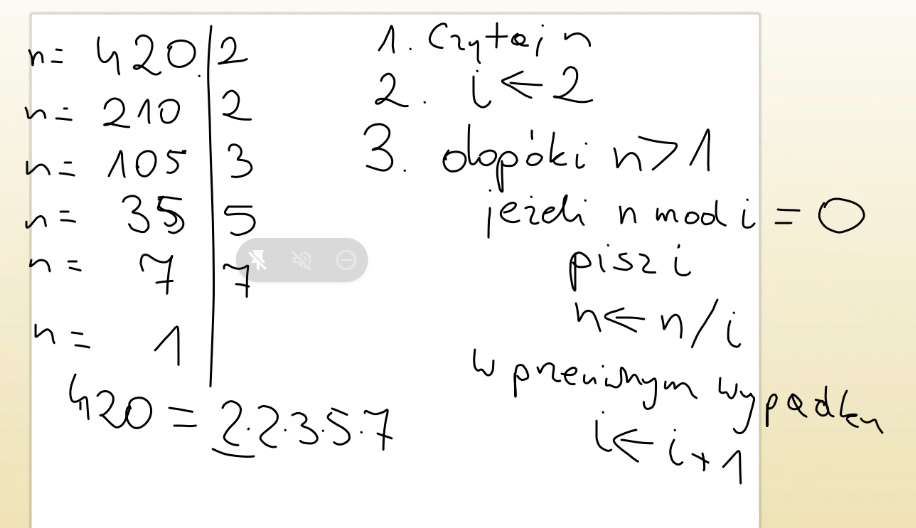 n= 420 2
n= 210 2
n= 105 3
n= 35 5
n= 7 7
n= 1
420 = 2.2.3.5.7
1. Czytaj n
2. i ← 2
3. dopóki n>1
jeżeli n mod i = 0
pisz i
n ← n/i
w przeciwnym wypadku
i ← i+1